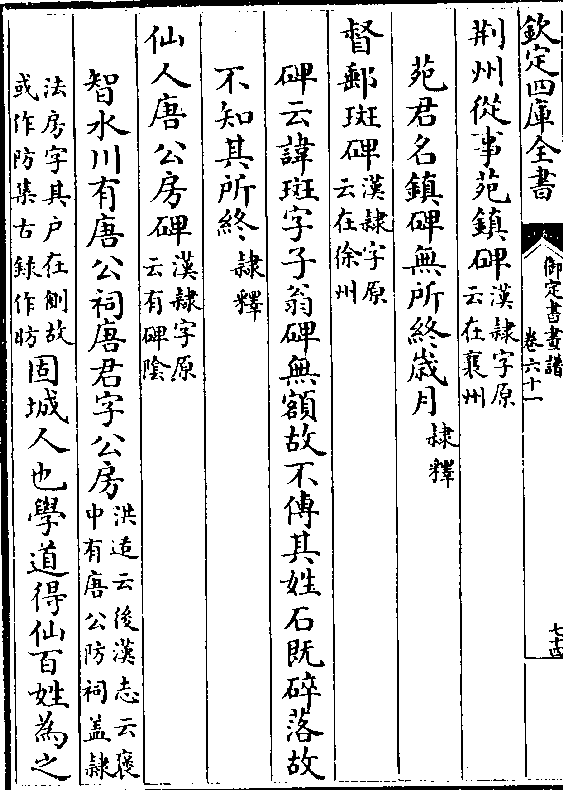 欽定四庫全書
御定書畫譜
卷六十一
七十四
荆州從事苑鎮碑漢隸字原云在襄州
苑君名鎮碑無所終歲月隸釋
督郵斑碑漢隸字原云在徐州
碑云諱斑字子翁碑無額故不傳其姓石既碎落故
不知其所終隸釋
仙人唐公房碑漢隸字原云有碑陰
智水川有唐公祠唐君字公房洪适云後漢志云褒中有唐公防祠盖隸
法房字其户在側故或作防集古錄作昉固城人也學道得仙百姓為之